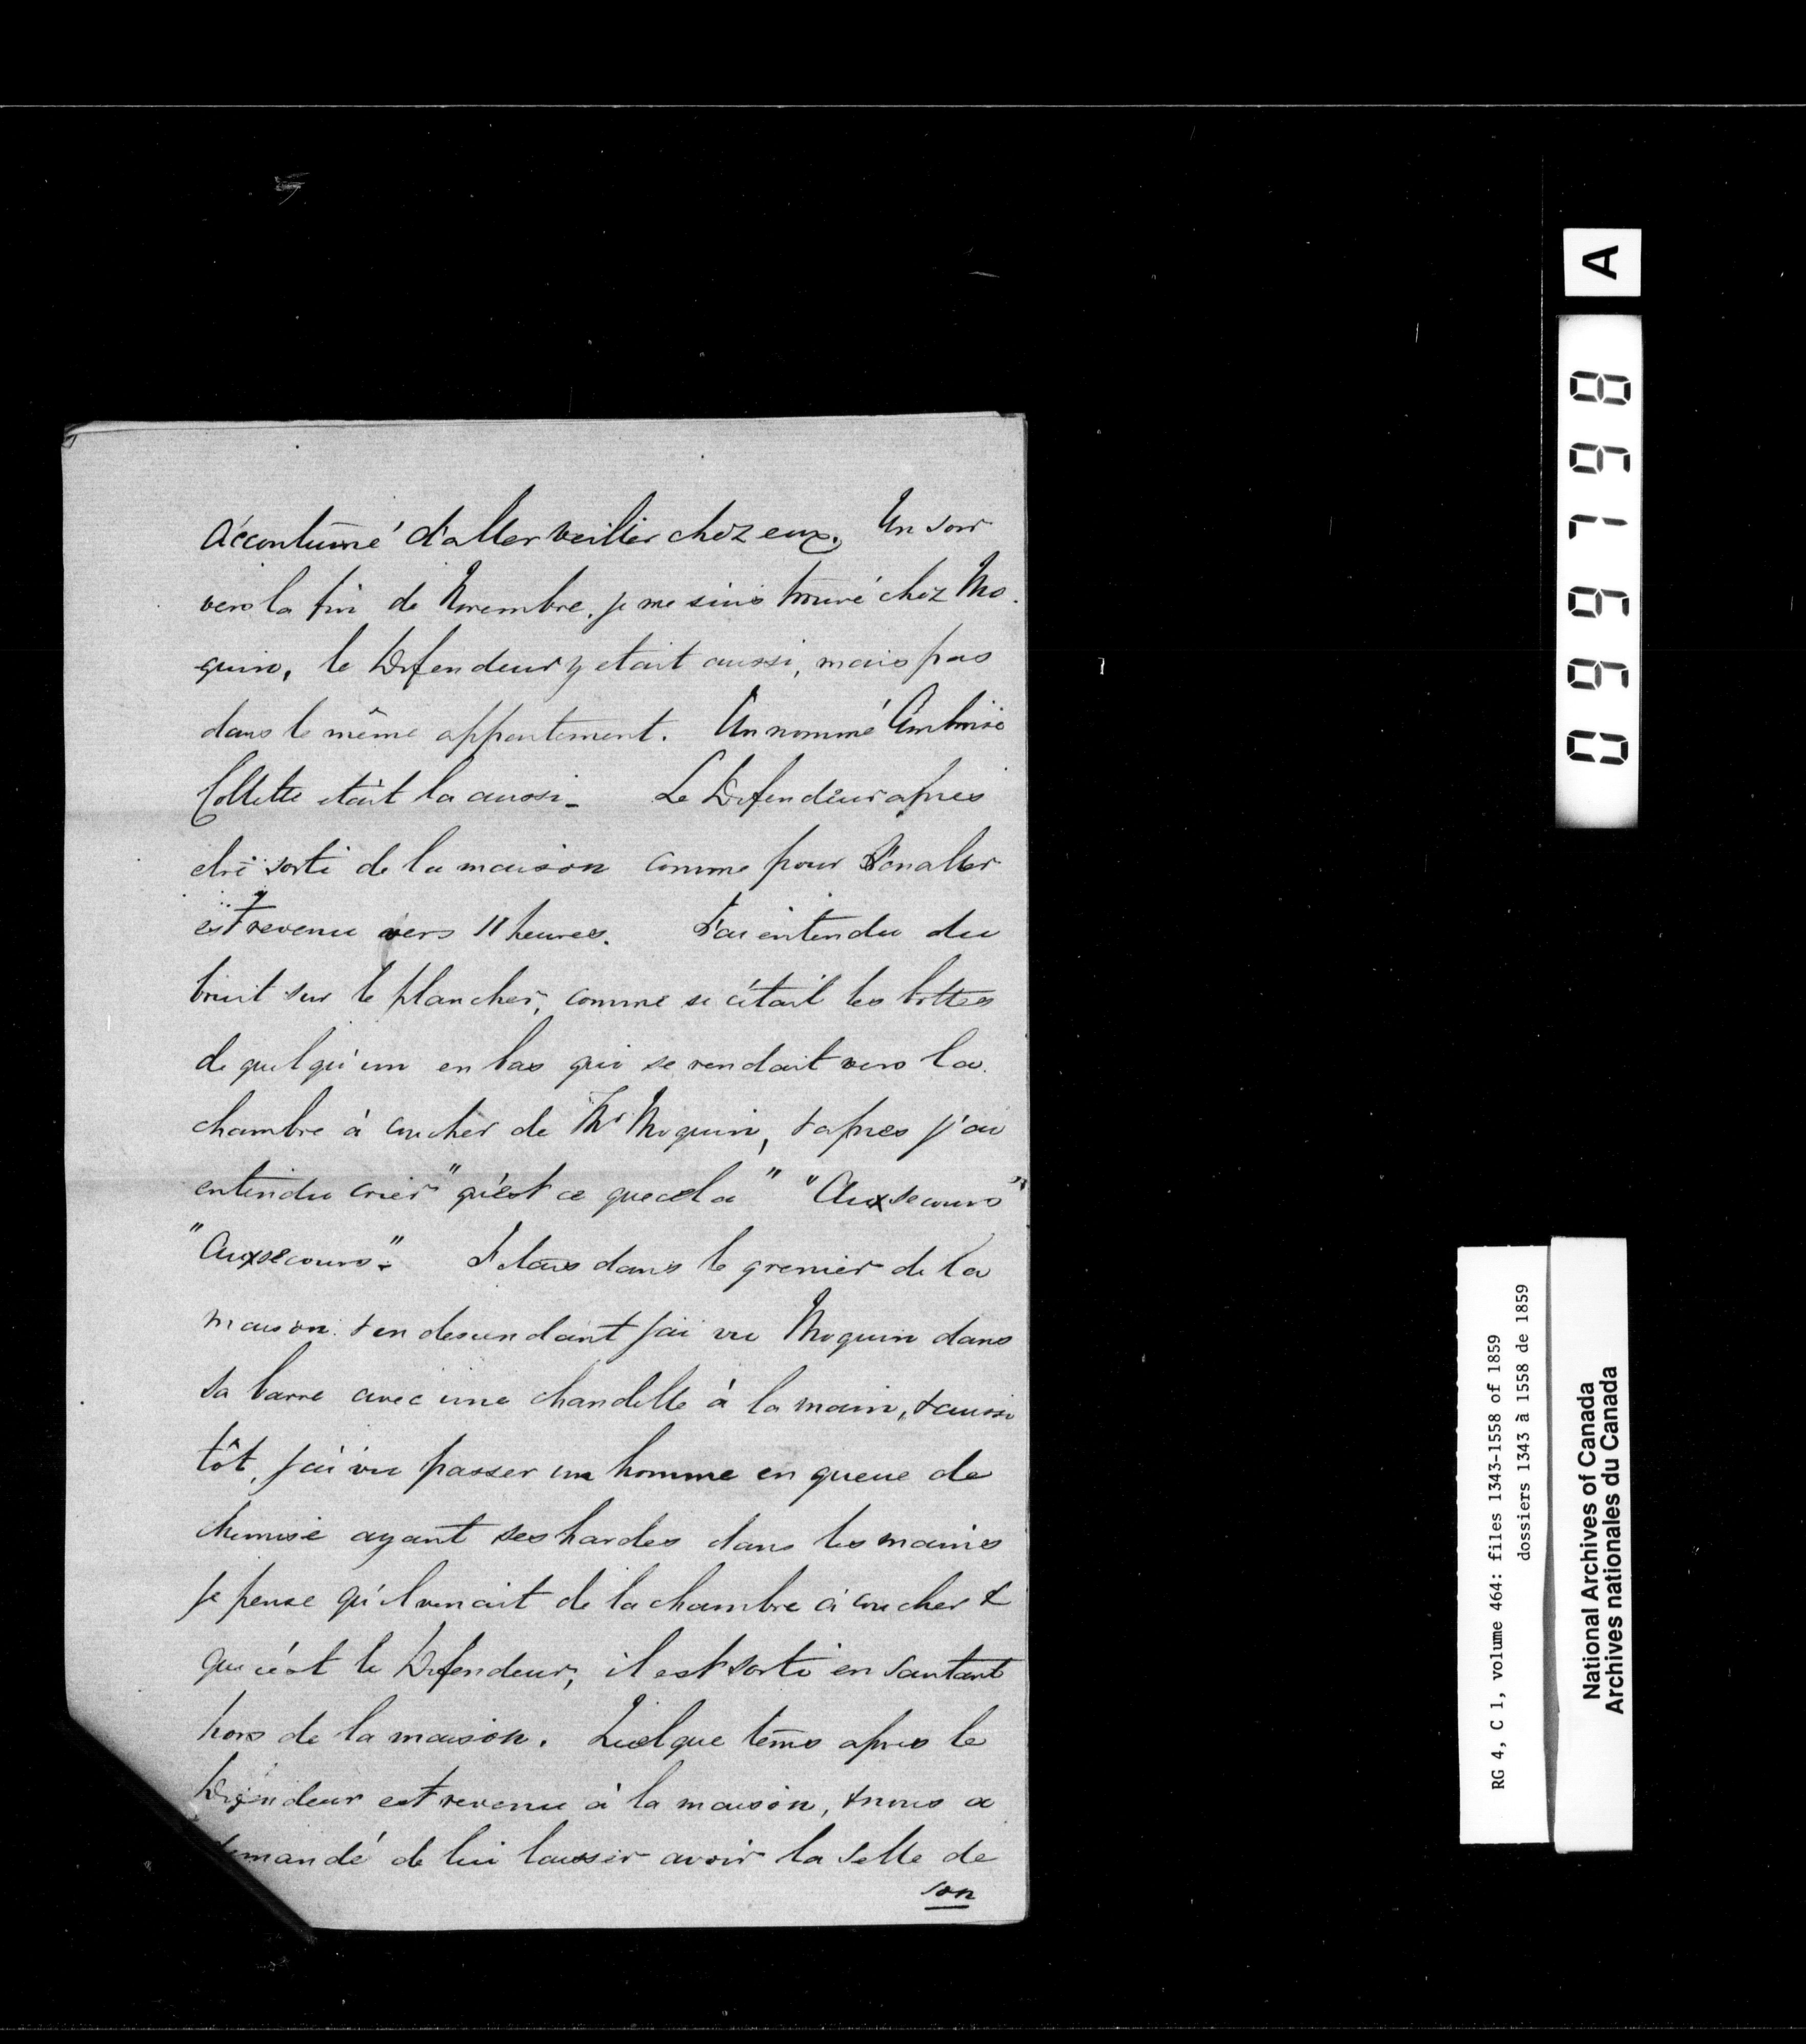 Accoutumé d'aller veiller chez eux. Un soir
vers la fin de Novembre, je me suis trouvé chez Mo-
quin, le Défendeur y etait aussi, mais pas
dans le même appartement. Un nommé Ambroise
Collette etait la aussi_ Le Défendeur apres
etre sorti de la maison comme pour s'en aller
est revenu vers 11 heures. J'ai entendu du
bruit sur le plancher, comme si c'était les bottes
de quelqu'un en bas qui se rendait vers la
chambre à coucher de Mr Moquin, & apres j'ai
entendu crier "qu'est ce que cela" "Aux secours"
"Aux secours". J'etais dans le grenier de la
maison & en descendant j'ai vu Moquin dans
sa barre avec une chandelle à la main, & aussi
tôt, j'ai vu passer un homme en queue de
chemise ayant ses hardes dans les mains
je pense qu'il venait de la chambre à coucher &
que c'est le Défendeur, il est sorti en sautant
hors de la maison. Quelque tems apres le
Défendeur est revenu à la maison, & nous a
demandé de lui laisser avoir la selle de
son
A
0996798
RG 4, C 1, volume 464: files 1343-1558 of 1859
dossiers 1343 à 1558 de 1859
National Archives of Canada
Archives nationales du Canada